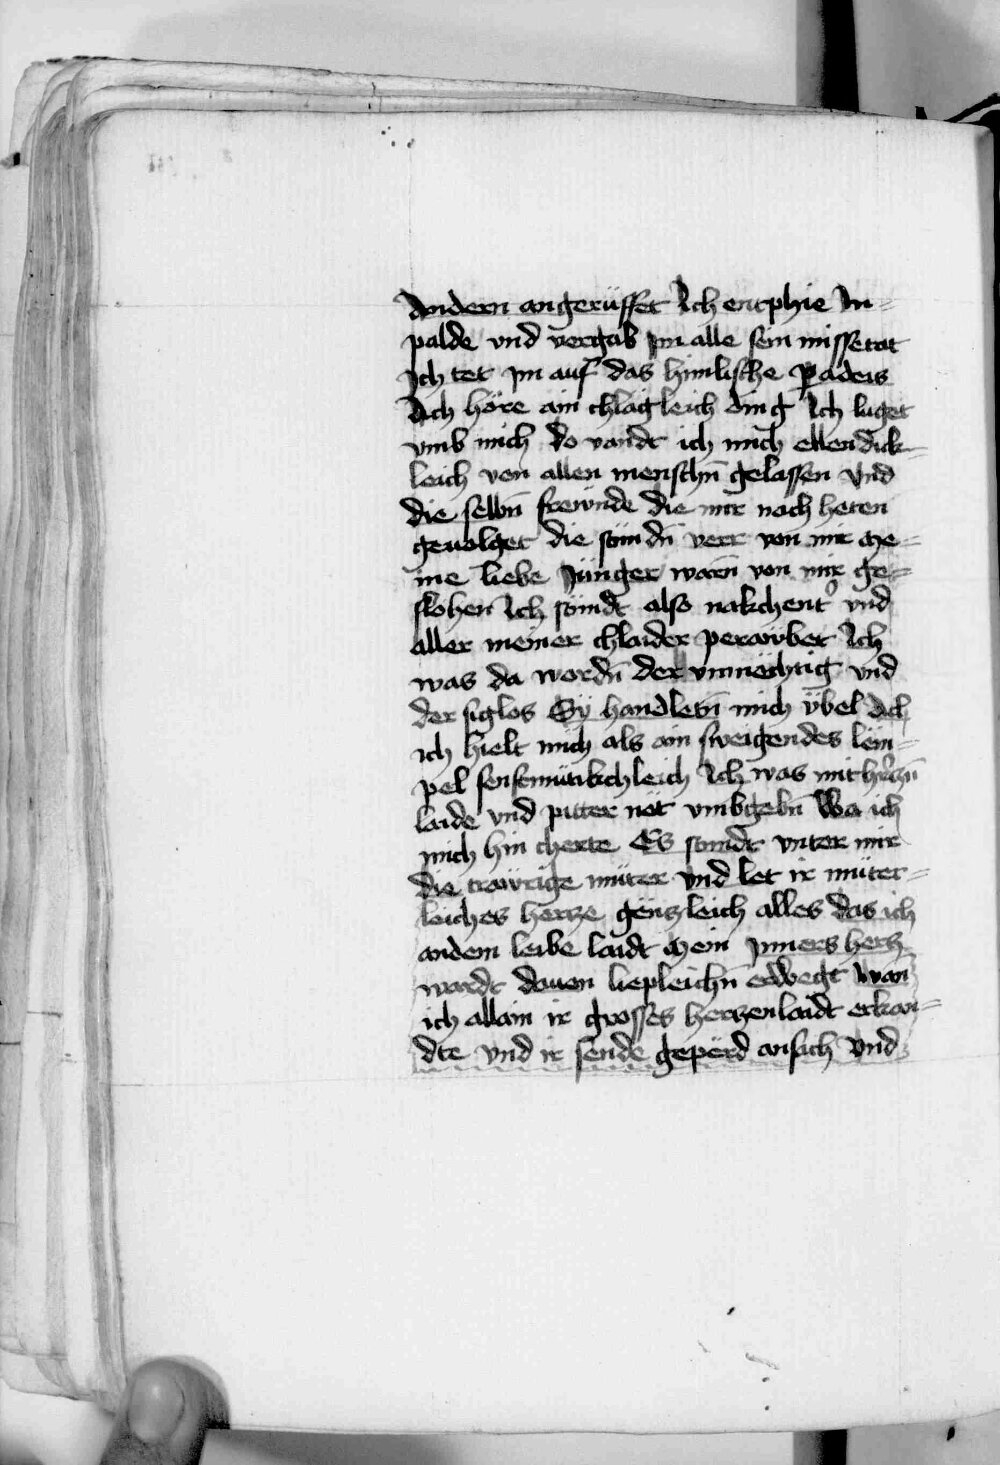 Andern angerüffet Ich entphie In-
palde vnd vergab jm alle sein missetat
Ich tet jm auf das himlische padeis
Ach höre ain chlägleich ding Ich luget
vmb mich do vandt ich mich ellendick-
leich von allen menschn̄ gelassen Vnd
die selbn̄ frewnde die mir nach heten
geuolget die stündn̄ verr von mir me-
ine liebe Jünger warn̄ von mir ge-
flohen Ich stündt also nakchent vnd
aller meiner chlaider perawbet Ich
was da wordn̄ der vnmechtig vnd
der siglos Sÿ handletn̄ mich übel Ach
ich hielt mich als ain sweigendes lem-
pel senftmütikchleich Ich was mit hertzn̄
laide vnd pitter nöt vmbgebn̄ Wa ich
mich hin cherte Es stundt vnter mir
die trawrige müter Vnd let ir müter-
leiches hertze gentzleich alles das ich
andem leibe laidt Mein Inners hertz
wardt dauon liepleichn̄ erwegt wan
ich allain ir grosses hertzenlaidt erkan-
dte vnd ir sende geperd ansach Vnd